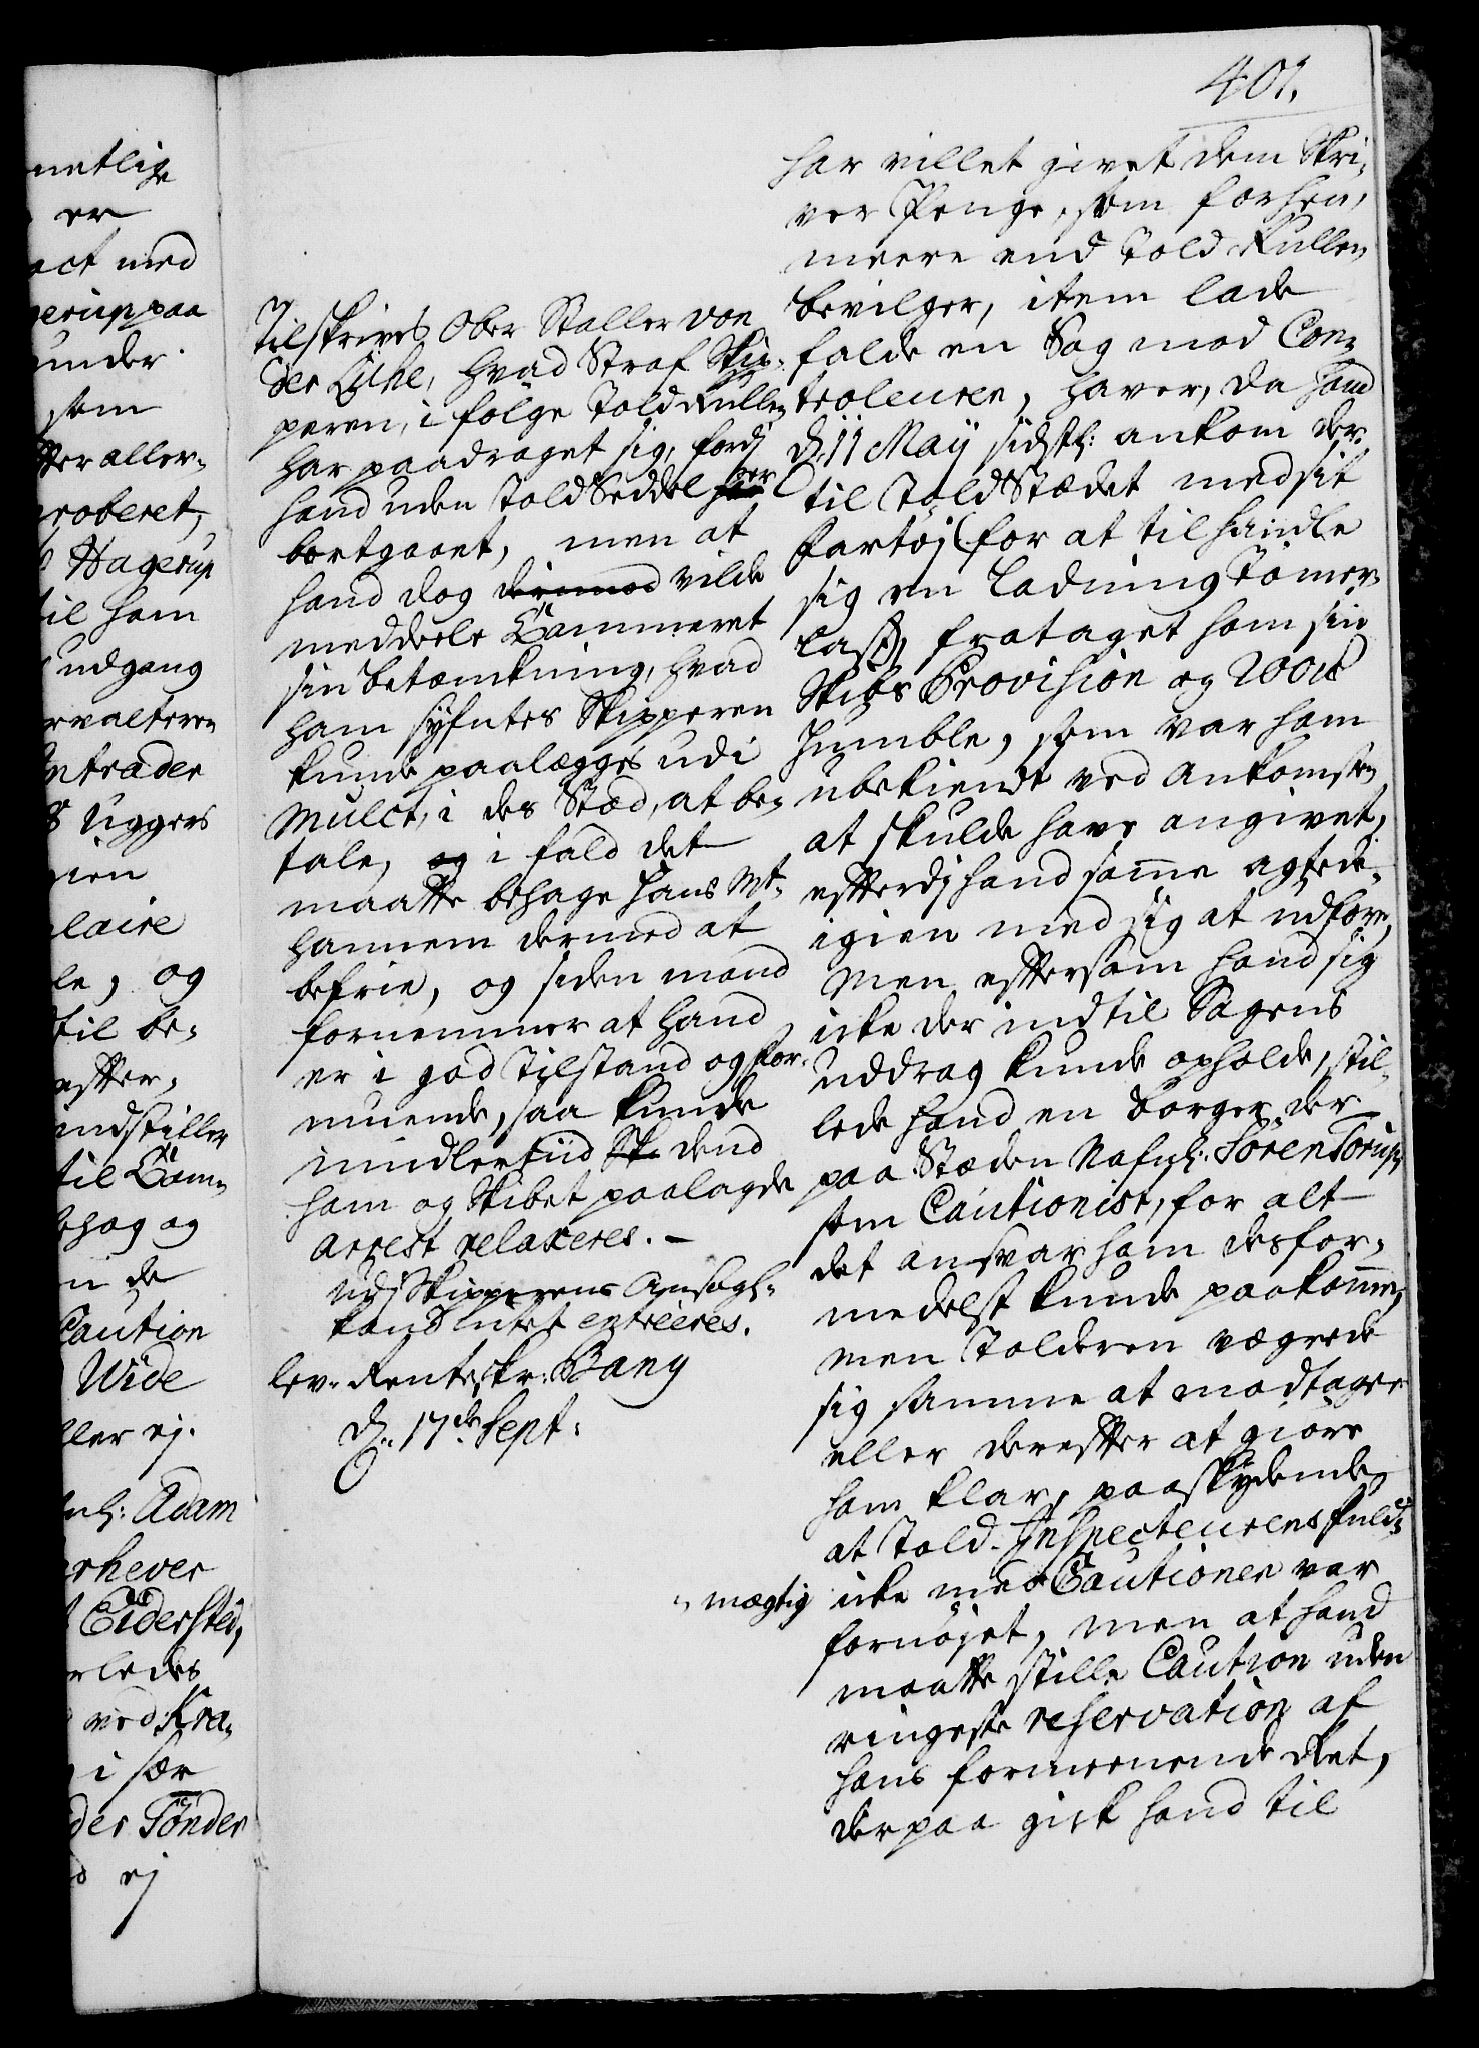 401.
netlig
er
act med
gerup paa
under
som
tter aller-
roberet,
Hagerup
til ham
udgang
rvalteren
Intrader
Uggers
gien
laire
le, og
til be-
efter,
indstiller
til Cam-
behag og
n de
Caution
Wide
ller ej.
nl: Adam
rhever
Eidersted,
rledes
ved Kra-
i sær
der Tönder
ej
Tilskrives Ober Staller von
der Lühe, hvad Straf Skip-
peren, i følge Told Rullen
har paadraget sig, fordi
hand uden Told Seddel er
bortgaaet, men at
hand dog derimod vilde
meddeele Cammeret
sin betænkning, hvad
ham syntes Skipperen
kunde paalægges udi
Mulct, i des Stæd, at be-
tale, og i fald det
maatte behage Hans Mt.
hannem dermed at
befrie, og siden mand
fornemmer at hand
er i god Tilstand og for-
muende, saa kunde
imidlertiid Sk. dend
ham og Skibet paalagde
Arrest relaxeres. -
Udj Skipperens Ansøgh:
kand intet entreeres.
lev. Renteskr: Bang
d. 17de Sept:
har villet givet dem Skri-
ver Penge, som forhen,
meere end Told Rullen
bevilger, item lade
falde en Sag mod Con-
trolleuren, haver, da hand
d. 11 Maij sidstl: ankom der
til Told Stædet med sit
Fartøj for at tilhandle
sig en Ladning Tømer-
last, frataget ham sin
Skibs Provision og 200 ℔
Humble, som var ham
ubekiendt ved Ankomsten
at skulde have angivet,
efterdj hand samme agtede
igien med sig at udføre,
Men eftersom hand sig
icke der indtil Sagens
uddrag kunde opholde, stil-
lede hand en borger der
paa Stæden Nafnl: Søren Torup
som Cautionist, for alt
det ansvar ham desfor-
medelst kunde paakomme,
Men Tolderen vægrede
sig samme at modtage
eller derefter at giøre
ham klar, paaskydende,
at Told-Inspecteurens fuld-
mægtig icke med Cautionen var
fornøjet, men at hand
maatte stille Caution uden
ringeste reservation af
hans formeenende Ret,
derpaa gick hand til